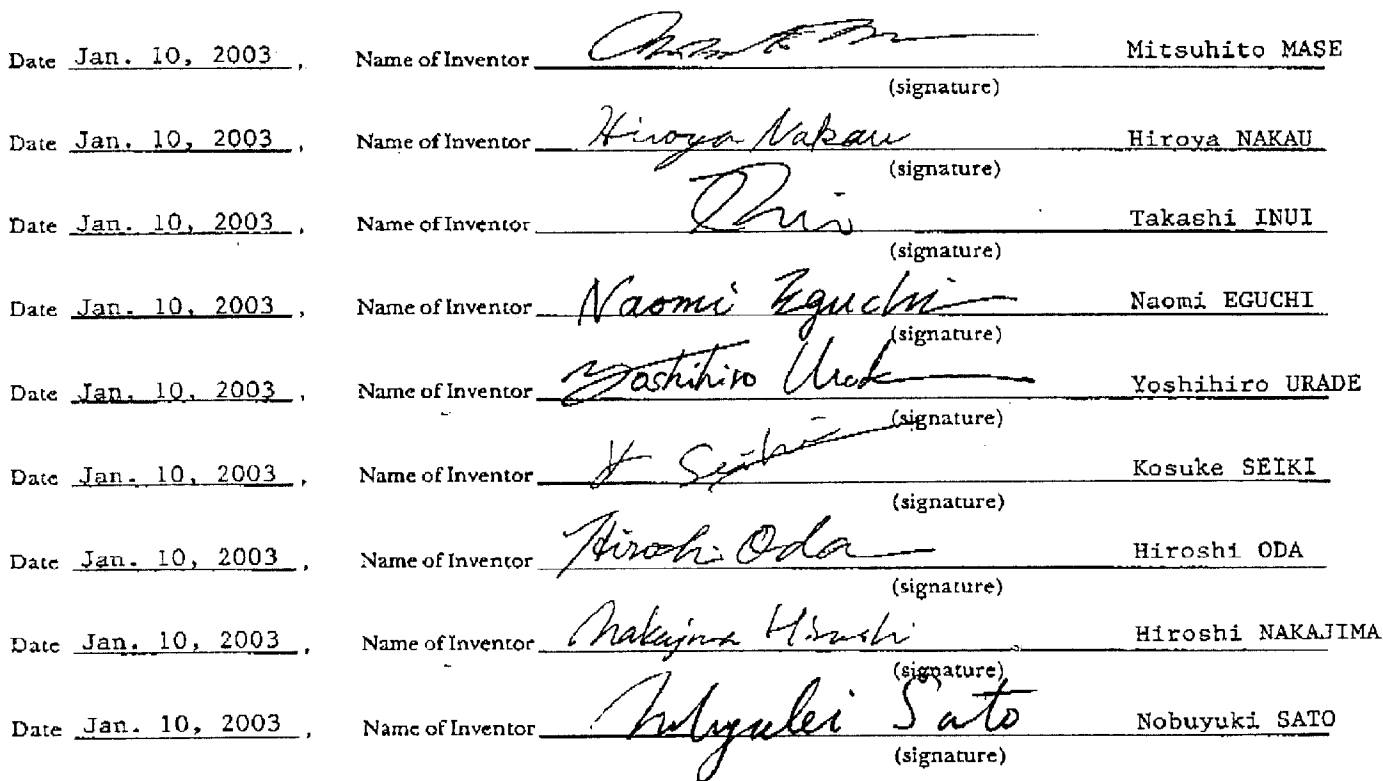 Date Jan. 10, 2003 , Name of Inventor Mitsuhito MASE
(signature)
Date Jan. 10, 2003 , Name of Inventor Hiroya Nakau Hiroya NAKAU
(signature)
Date Jan. 10, 2003 , Name of Inventor Takashi INUI
(signature)
Date Jan. 10, 2003 , Name of Inventor Naomi Eguchi Naomi EGUCHI
(signature)
Date Jan. 10, 2003 , Name of Inventor Yoshihiro Urade Yoshihiro URADE
(signature)
Date Jan. 10, 2003 , Name of Inventor K Seiki Kosuke SEIKI
(signature)
Date Jan. 10, 2003 , Name of Inventor Hiroshi Oda Hiroshi ODA
(signature)
Date Jan. 10, 2003 , Name of Inventor Nakajima Hiroshi Hiroshi NAKAJIMA
(signature)
Date Jan. 10, 2003 , Name of Inventor Nobuyuki Sato Nobuyuki SATO
(signature)